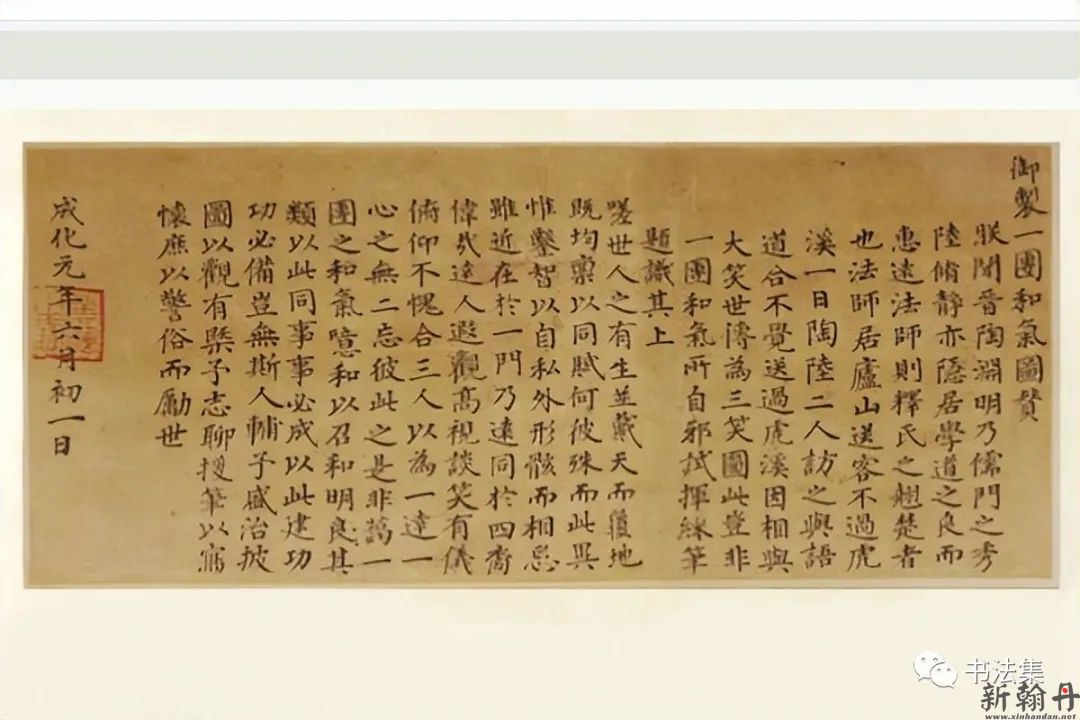 御製一團和氣圖贊
朕聞晋陶淵明乃儒門之秀
陸脩靜亦隱居學道之良而
惠遠法師則釋氏之翹楚者
也法師居廬山送客不過虎
溪一日陶陸二人訪之與語
道合不覺送過虎溪因相與
大笑世傳為三笑圖此豈非
一團和氣所自邪試揮綵筆
題識其上
嗟世人之有生並戴天而履地
既均稟以同賦何彼殊而此異
惟鑿智以自私外形骸而相忌
雖近在於一門乃遠同於四裔
偉哉達人遐觀高視談笑有儀
俯仰不愧合三人以為一達一
心之無二忘彼此之是非藹一
團之和氣噫和以召和明良其
類以此同事事必成以此建功
功必備豈無斯人輔予盛治披
圖以觀有槩予志聊援筆以寫
懷庶以警俗而勵世
成化元年六月初一日
书法集
新翰丹
www.xinhandan.net